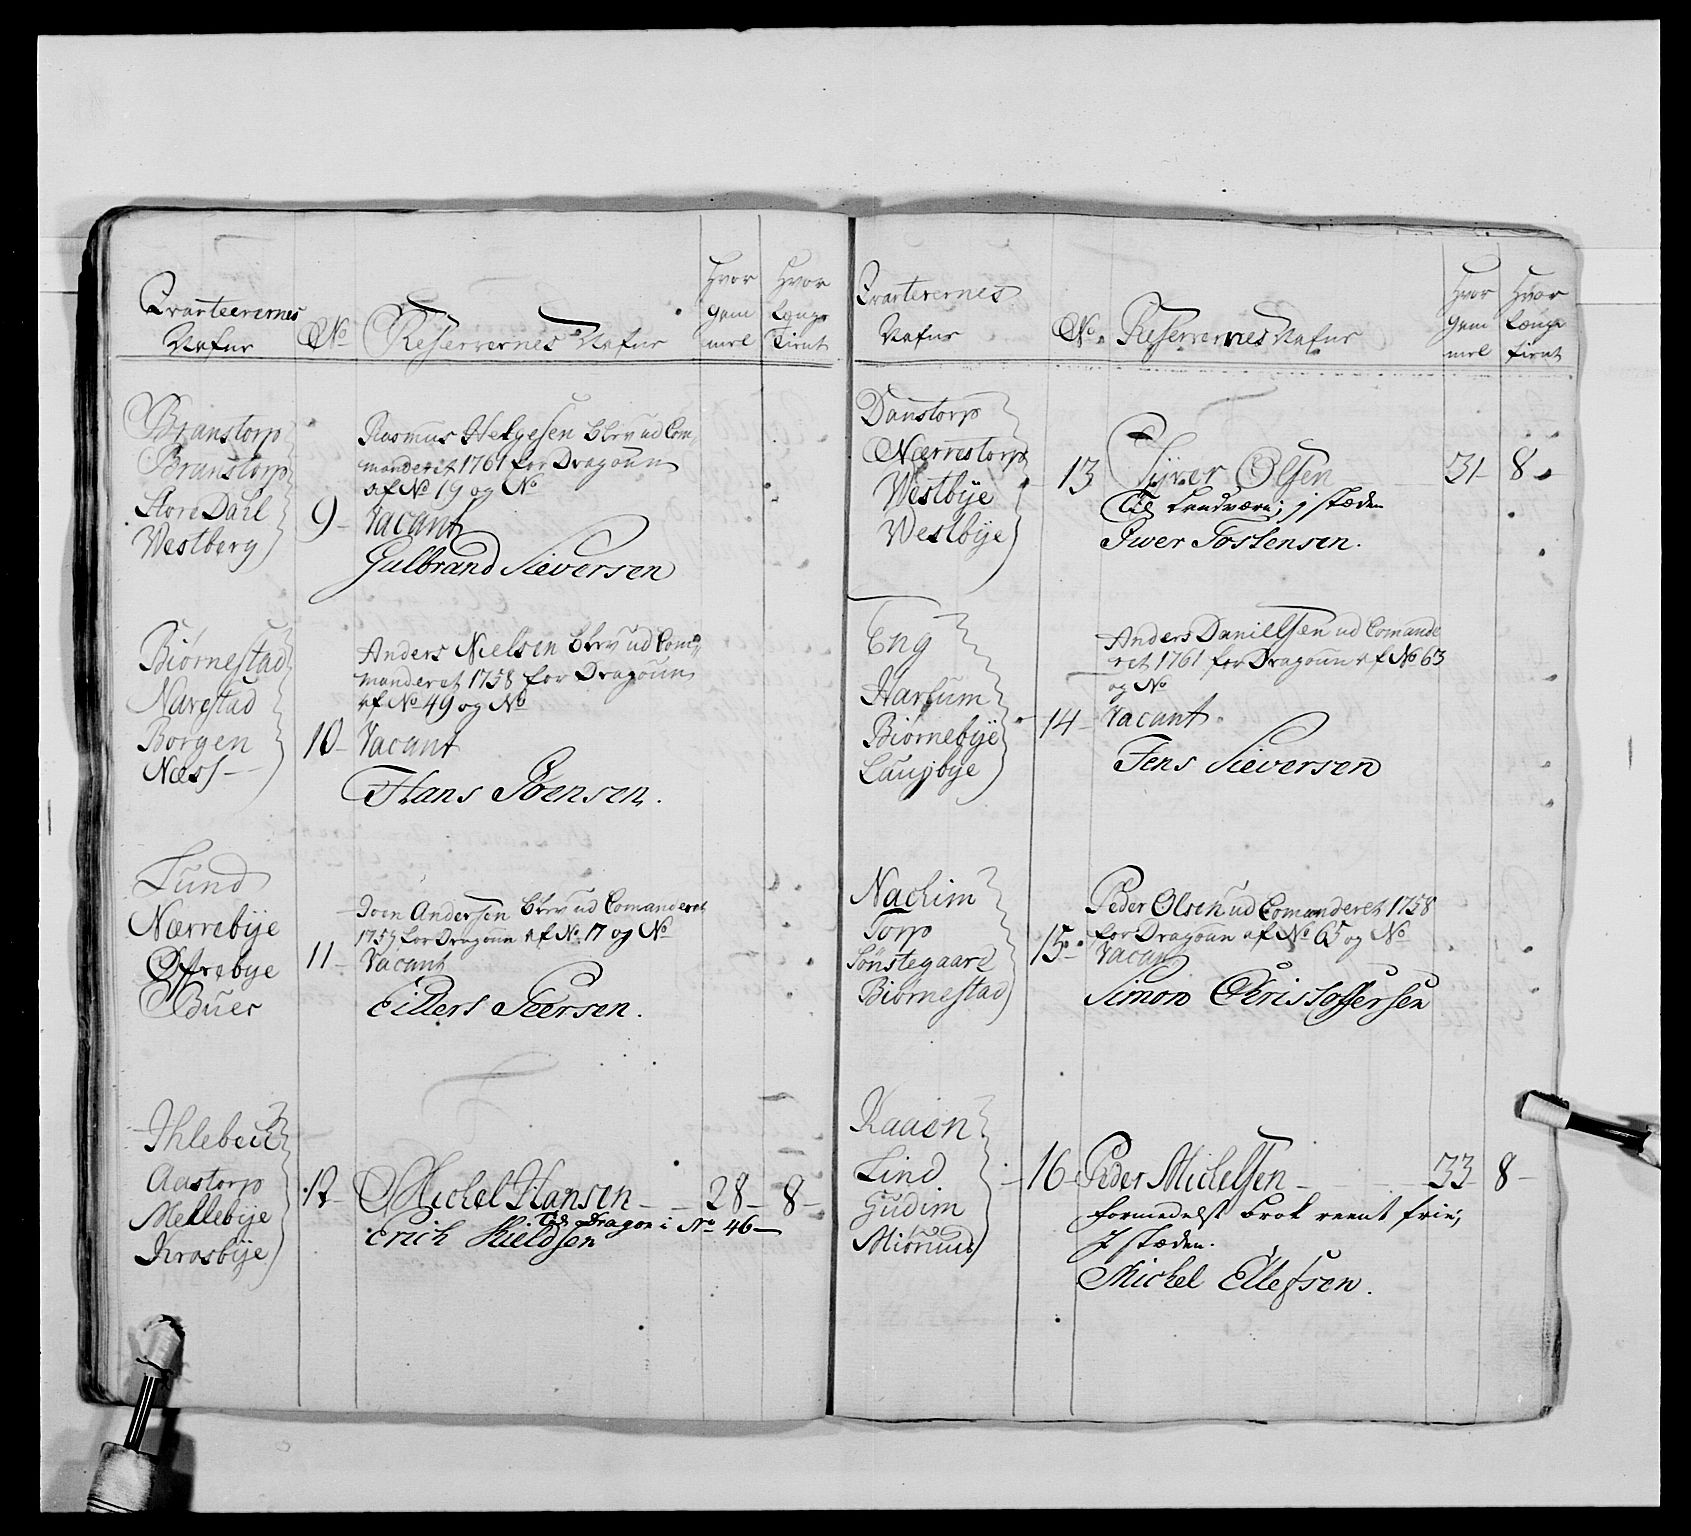 Qvarteerernes Nafne
No
Reservernes Nafne
Hvor gammel
Hvor Længe Tient
Branstorp
Branstorp
Store Dahl
Westberg
9
Rasmus Helgesen blev ud Com-
manderet 1761 for Dragoun
af No 19 og No
Vacant
Gulbrand Sieversen
Biørnestad
Narestad
Borgen
Næss
10
Anders Nielsen blev ud Com-
manderet 1758 for Dragoun
af No 49 og No
Vacant
Hans Joensen.
Lund
Nærrebye
Øfrebye
Buer
11
Joen Andersen blev ud Comanderet
1757 for Dragoun af No 17 og No
Vacant
Eillert Seersen.
Ihlebeck
Aastorp
Mellebye
Krosbye
12
Michel Hansen 28 8
Til Dragon i No 46
Erich Kieldsen
Qvarterernes Nafne
No.
Reservernes Nafne
Hvor gam mel
Hvor Længe tient
Danstorp
Nærrestorp
Westbye
Westbye
13
Syver Olsen 31 8
Til Landværn; j stæden
Iwer Tostensen.
Eng
Harlum
Biørnebye
Laugbye
14
Anders Danielsen ud Comande
ret 1761 for Dragoun af No 63
og No
Vacant
Jens Sieversen
Nachim
Torp
Sønstegaard
Biørnestad
15
Peder Olsen ud Comanderet 1758
for Dragoun af No 65 og No
Vacant
Simon Christoffersen
Kaaen
Lind
Gudim
16
Peder Michelsen 33 8
formedelst Brok reent frie;
I stæden.
Michel Ellefsen.